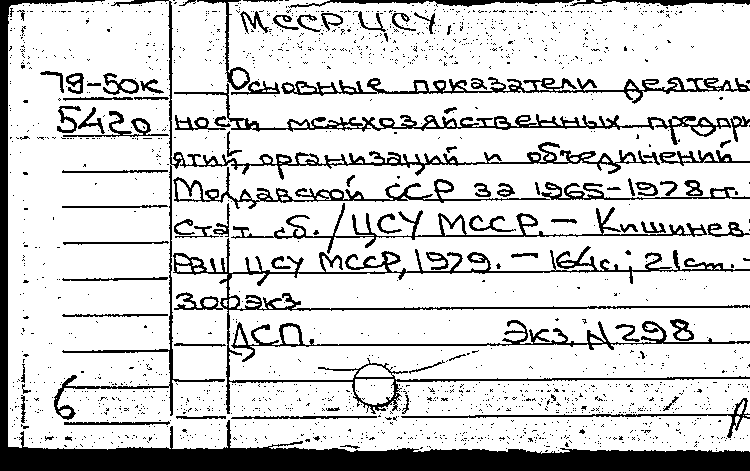 МССР ЦСУ.
79-50к Основные показатели деятель
5420 ности межхозяйственных предпри
ятий, организаций и объединений
Молдавской ССР за 1965-1978 гг.
Стат. сб. / ЦСУ МССР. — Кишинев:
РВЦ ЦСУ МССР, 1979. — 164с.; 21см. -
300экз
ДСП. Экз. N 298.
б